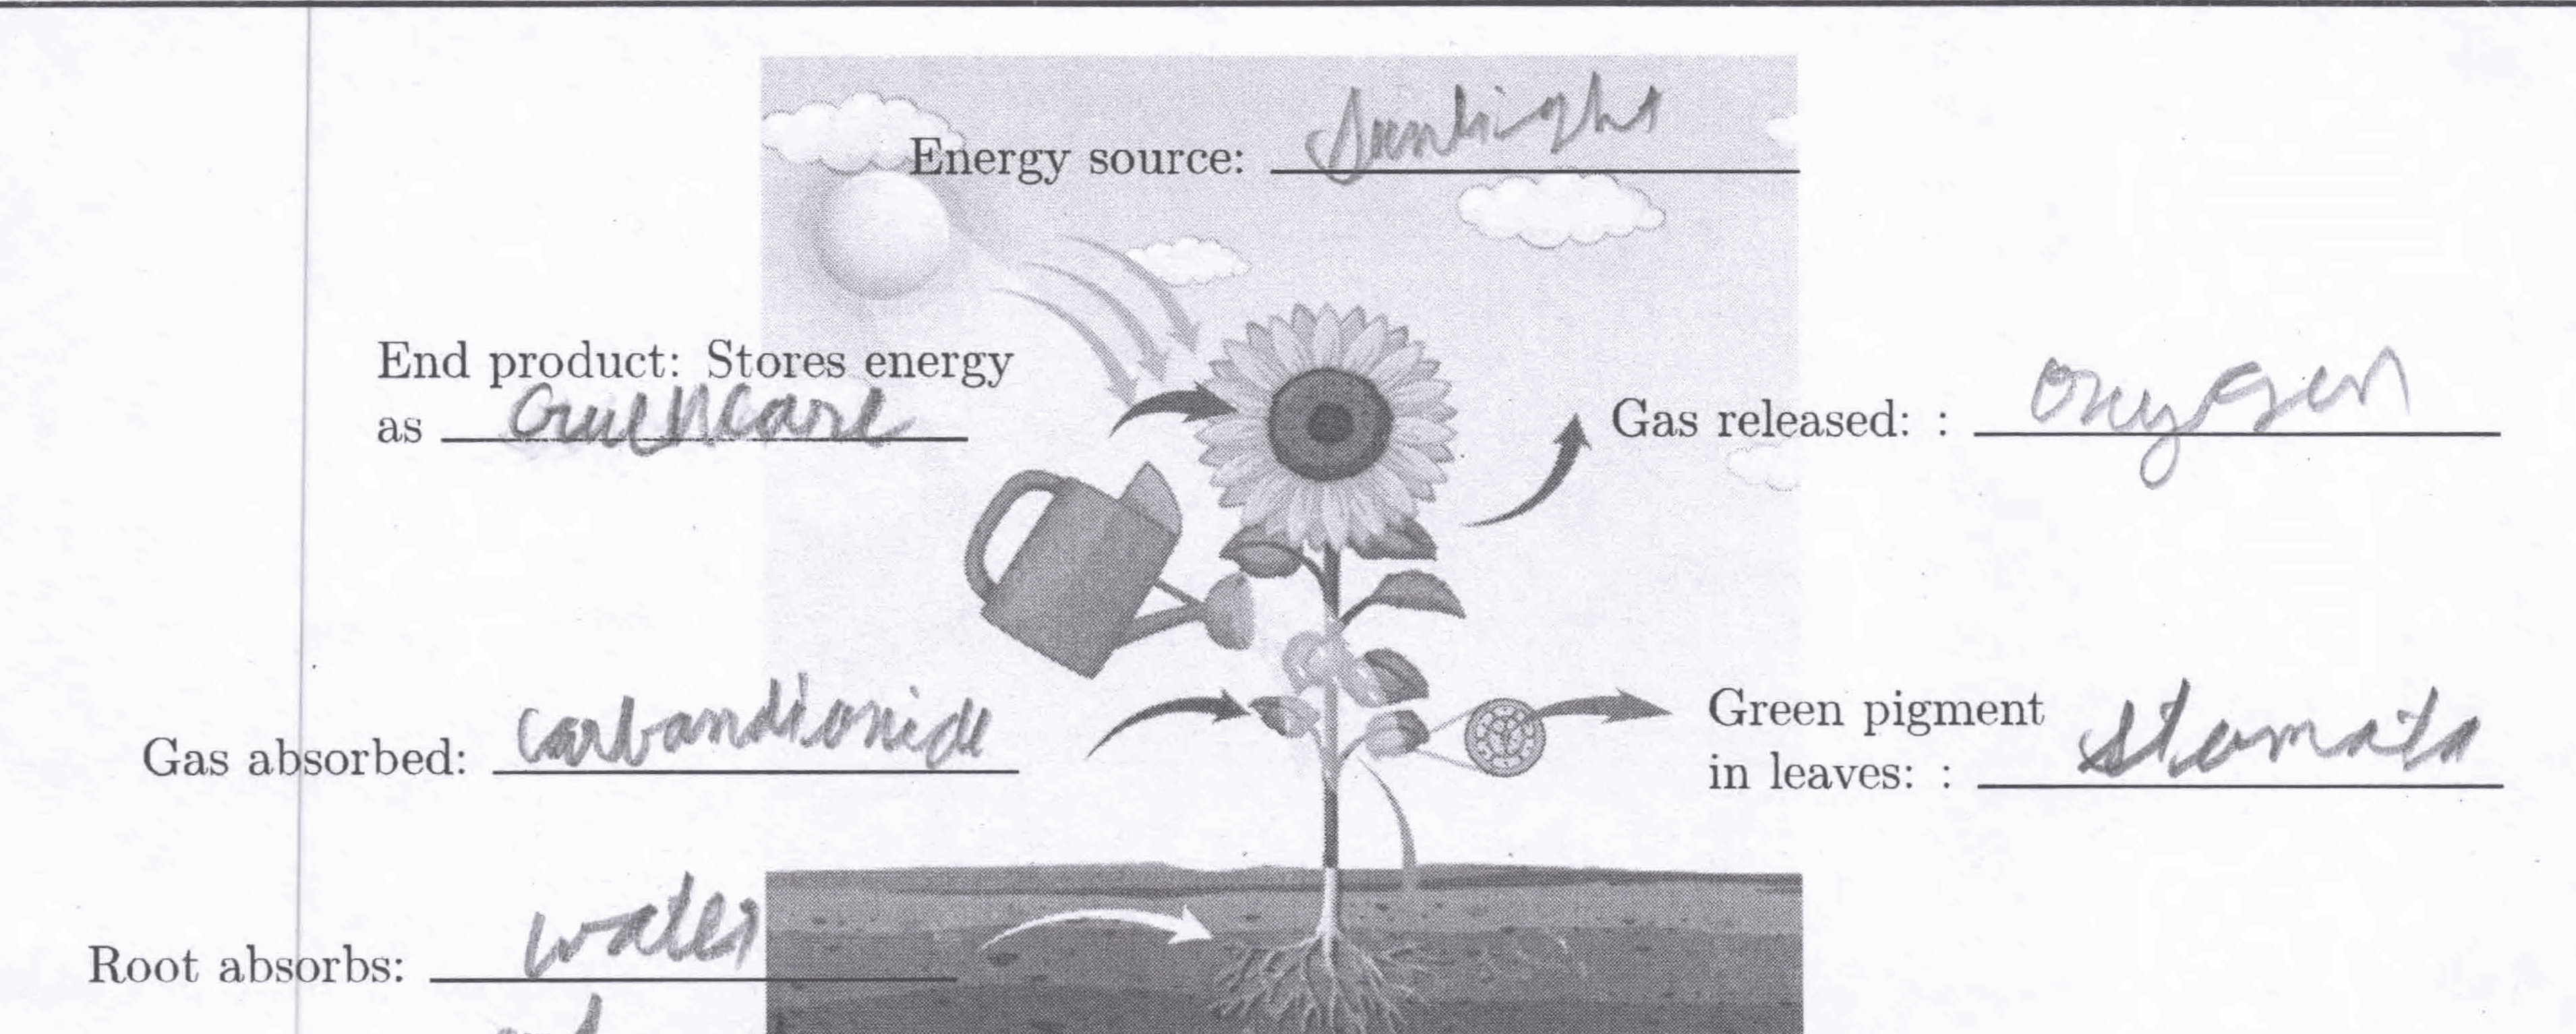 Energy source: Sunlight
End product: Stores energy
as
Gas released: : oxygen
Gas absorbed: carbandioxide
Green pigment
in leaves: : stomata
Root absorbs: water